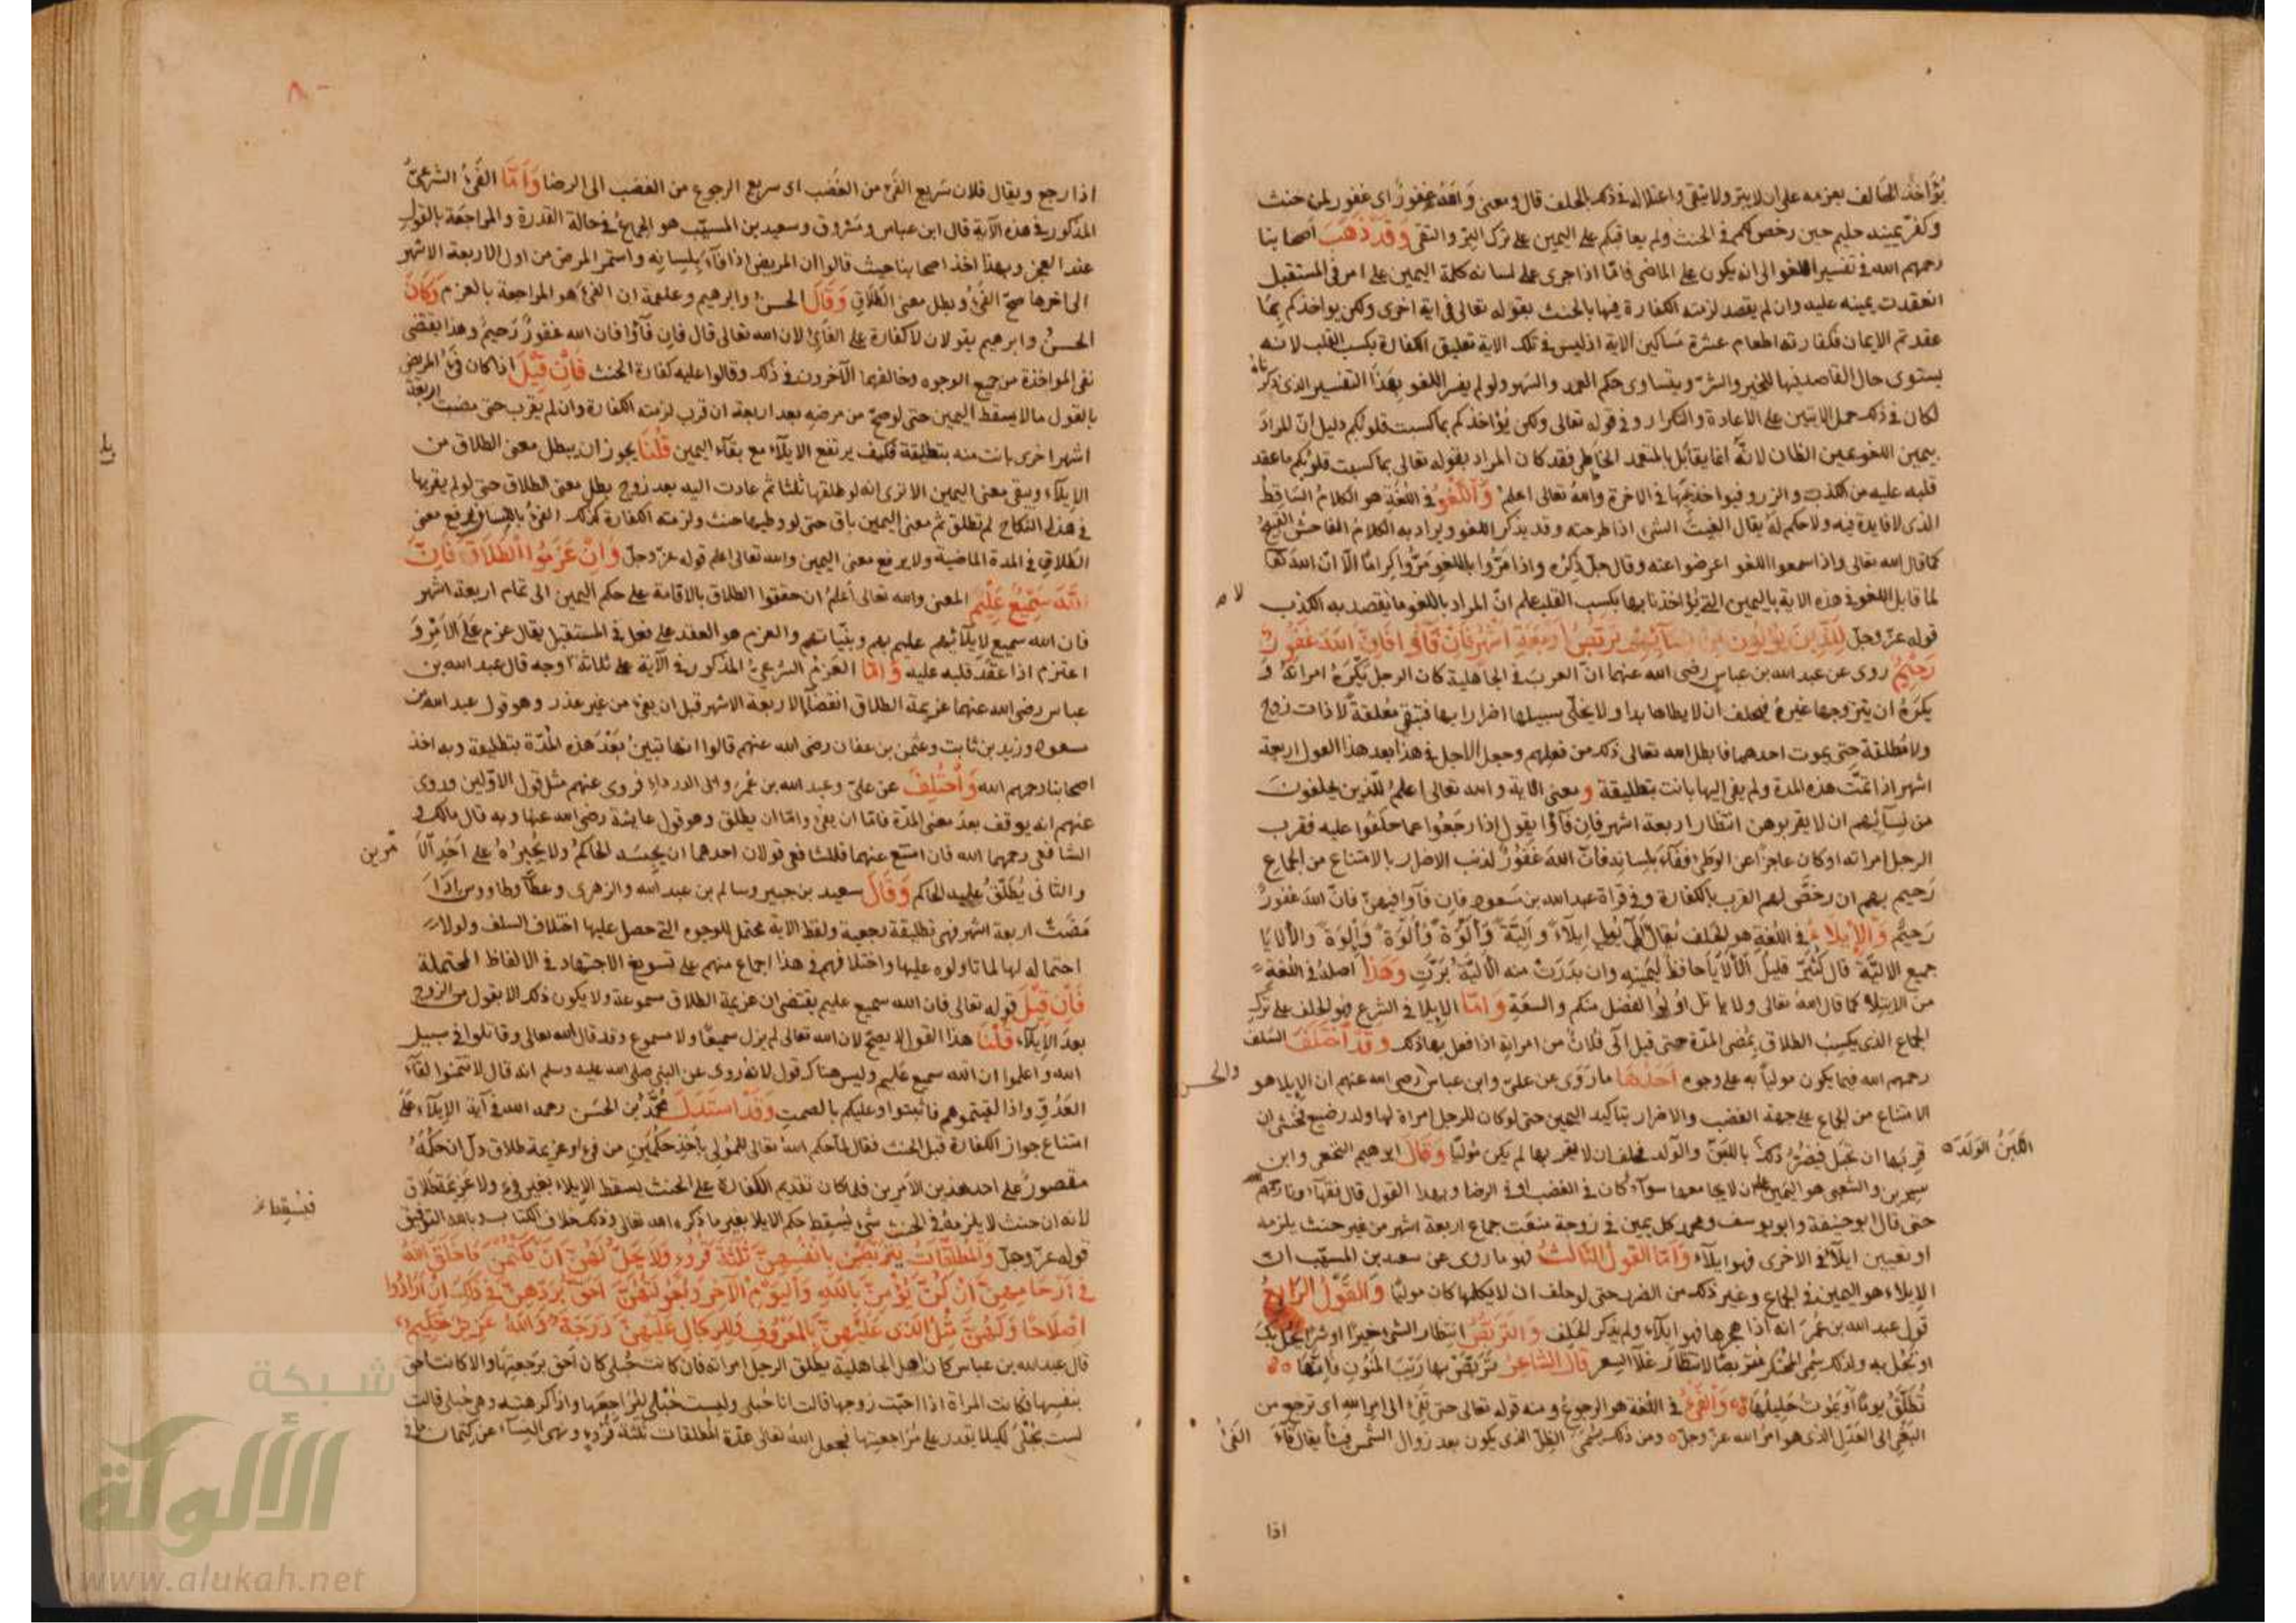 يؤاخذ الحالف بعزمه على ان لا يبر ولا يتقي واعتلاله في ذلك بالحلف قال ومعنى والله غفور اى غفور لمن حنث
وكفر يمينه حليم حين رخص لكم فى الحنث ولم يعاقبكم على اليمين على ترك البر والتقى وقد ذهب اصحابنا
رحمهم الله فى تفسير اللغو الى انه يكون على الماضى فامّا اذا جرى على لسانه كلمة اليمين على امر فى المستقبل
انعقدت يمينه عليه وان لم يقصد لزمته الكفارة فيها بالحنث بقوله تعالى فى اية اخرى ولكن يواخذكم بما
عقدتم الايمان فكفارته اطعام عشرة مساكين الاية اذ ليس فى تلك الاية تعليق الكفارة بكسب القلب لانه
يستوى حال القاصد فيها للخير والشر ويتساوى حكم العمد والسهو ولو لم يفسر اللغو بهذا التفسير الذى ذكرناه
لكان فى ذلك حمل الايتين على الاعادة والتكرار وفى قوله تعالى ولكن يؤاخذكم بما كسبت قلوبكم دليل انّ المراد
بيمين اللغو يمين الظان لانّه انما يقابل بالمتعمد الخاطى فقد كان المراد بقوله تعالى بما كسبت قلوبكم ما عقد
قلبه عليه من الكذب والزور فيواخذ بها فى الاخرة والله تعالى اعلم واللغو فى اللغة هو الكلام الساقط
الذى لا فايدة فيه ولا حكم له يقال الغيت الشئ اذا طرحته وقد يذكر اللغو ويراد به الكلام الفاحش القبيح
كما قال الله تعالى واذا سمعوا اللغو اعرضوا عنه وقال جل ذكره واذا مروا باللغو مروا كراما الّا ان الله تعا
لما قابل اللغو فى هذه الاية باليمين التى يؤاخذنا بها بكسب القلب علم انّ المراد باللغو ما يقصد به الكذب
لا
قوله عزّ وجلّ للذين يؤلون من نسائهم تربص اربعة اشهر فان فآؤا فان الله غفور
رحيم روى عن عبد الله بن عباس رضى الله عنهما انّ العرب فى الجاهلية كان الرجل يكره امراته و
يكره ان يتزوجها غيره فيحلف ان لا يطاها ابدا ولا يخلّى سبيلها اضرارا بها فتبقى معلقة لا ذات زوج
ولا مطلقة حتى يموت احدهما فابطل الله تعالى ذلك من فعلهم وجعل الاجل فى هذا بعد هذا القول اربعة
اشهر اذا تمّت هذه المدة ولم يفئ اليها بانت بتطليقة ومعنى الاية والله تعالى اعلم للّذين يحلفون
من نسآئهم ان لا يقربوهن انتظار اربعة اشهر فان فآؤا يقول اذا رجعوا عما حلفوا عليه فقرب
الرجل امراته او كان عاجزا عن الوطى ففاء بلسانه فانّ الله غفور لذنب الاضرار بالامتناع من الجماع
رحيم بهم ان رخص لهم القرب بالكفارة وفى قراة عبد الله بن مسعود فان فآوا فيهنّ فانّ الله غفور
رحيم والايلاء فى اللغة هو الحلف يقال آلى يولى ايلاء والية والوة والوة والوة والالايا
جميع الاليّة قال كثير قليل الالايا حافظ ليمينه وان بدرت منه الاليّة برّت وهذا اصله فى اللغة
من الايتلاء كما قال الله تعالى ولا ياتل اولوا الفضل منكم والسعة وامّا الايلا فى الشرع فهو الحلف على ترك
الجماع الذى يكسب الطلاق بمضى المدّة حتى قيل آلى فلان من امراته اذا فعل بها ذلك وقد اختلف السلف
رحمهم الله فيما يكون موليا به على وجوه احدها ما روى عن علىّ وابن عباس رضى الله عنهم ان الايلا هو
والحسن
الامتناع من الجماع على جهة الغضب والاضرار بتاكيد اليمين حتى لو كان للرجل امراة لها ولد رضيع فخشى ان
قربها ان تحبل فيضر ذلك باللبن والولد فحلف ان لا يقربها لم يكن موليا وقال ابرهيم النخعى وابن
اللبن الولد
سيرين والشعبى هو اليمين على ان لا يجامعها سوآء كان فى الغضب او فى الرضا وبهذا القول قال فقهاء
حتى قال ابو حنيفة وابو يوسف ومحمد كل يمين فى زوجة منعت جماع اربعة اشهر من غير حنث يلزمه
او تعيين ايلآء فى الاخرى فهو ايلآء وامّا القول الثالث فهو ما روى عن سعيد بن المسيّب ان
الايلاء هو اليمين فى الجماع وغير ذلك من الضرر حتى لو حلف ان لا يكلمها كان موليا والقول الرابع
قول عبد الله بن عمر انه اذا هجرها فهو ايلآء ولم يذكر الحلف والتربّص انتظار الشئ خيرا او شرا يحل بك
او تحل به ولذلك سمى المحتكر متربصا لانتظار غلآء السعر قال الشاعر تربّص بها ريب المنون فانها
تطلّق يوما او يموت حليلها والفئ فى اللغة هو الرجوع ومنه قوله تعالى حتى تفئ الى امر الله اى ترجع من
البغى الى العدل الذى هو امر الله عزّ وجلّ ومن ذلك سمى الظلّ الذى يكون بعد زوال الشمس فيئا يقال فآء الفئ
اذا
٨٠
اذا رجع ويقال فلان سريع الفئ من الغضب اى سريع الرجوع من الغضب الى الرضا وامّا الفئ الشرعىّ
المذكور فى هذه الآية قال ابن عباس ومسروق وسعيد بن المسيّب هو الجماع فى حالة القدرة والمراجعة بالقول
عند العجز وبهذا اخذ اصحابنا حيث قالوا ان المريض اذا فآء بلسانه واستمر المرض من اول الاربعة الاشهر
الى اخرها صحّ الفئ وبطل معنى الطلاق وقال الحسن وابرهيم وعلقمة ان الفئ هو المراجعة بالعزم وكان
الحسن وابرهيم يقولان لا كفارة على الفائ لان الله تعالى قال فان فآؤا فان الله غفور رحيم وهذا يقتضى
نفى المواخذة من جميع الوجوه وخالفهما الآخرون فى ذلك وقالوا عليه كفارة الحنث فان قيل اذا كان فئ المريض
بالقول مالا يسقط اليمين حتى لو صحّ من مرضه بعد اربعة ان قرب لزمته الكفارة وان لم يقرب حتى مضت اربعة
اشهر اخرى بانت منه بتطليقة فكيف يرتفع الايلآء مع بقآء اليمين قلنا يجوز ان يبطل معنى الطلاق من
الايلآء ويبقى معنى اليمين الا ترى انه لو طلقها ثلثا ثم عادت اليه بعد زوج بطل معنى الطلاق حتى لو لم يقربها
فى هذا النكاح لم تطلق ثم معنى اليمين باق حتى لو وطيها حنث ولزمته الكفارة كذلك الفئ باللسان يرفع معنى
الطلاق فى المدة الماضية ولا يرفع معنى اليمين والله تعالى اعلم قوله عزّ وجلّ وان عزموا الطلاق فانّ
الله سميع عليم المعنى والله تعالى أعلم ان حققوا الطلاق بالاقامة على حكم اليمين الى تمام اربعة اشهر
فان الله سميع لايلآئهم عليم بهم وبنيّاتهم والعزم هو العقد على فعل فى المستقبل يقال عزم على الامر و
اعتزم اذا عقد قلبه عليه وامّا العزم الشرعىّ المذكور فى الآية على ثلاثة اوجه قال عبد الله بن
عباس رضى الله عنهما عزيمة الطلاق انقضآء الاربعة الاشهر قبل ان يفئ من غير عذر وهو قول عبد الله بن
مسعود وزيد بن ثابت وعثمن بن عفان رضى الله عنهم قالوا انها تبين بعد هذه المدّة بتطليقة وبه اخذ
اصحابنا رحمهم الله واختلف عن علىّ وعبد الله بن عمر وابى الدرداء فروى عنهم مثل قول الاوّلين وروى
عنهم انه يوقف بعد مضى المدّة فامّا ان يفئ وامّا ان يطلق وهو قول عايشة رضى الله عنها وبه قال مالك و
الشافعى رحمهما الله فان امتنع عنهما فللشافعى قولان احدهما ان يحبسه الحاكم ولا يجبره على احد الا
مرين
والثانى يطلّق عليه الحاكم وقال سعيد بن جبير وسالم بن عبد الله والزهرى وعطآء وطاووس اذا
مضت اربعة اشهر فهى تطليقة رجعية ولفظ الاية محتمل للوجوه التى حصل عليها اختلاف السلف ولولا
احتماله لها لما تاولوه عليها واختلافهم فى هذا اجماع منهم على تسويغ الاجتهاد فى الالفاظ المحتملة
فان قيل قوله تعالى فان الله سميع عليم يقتضى ان عزيمة الطلاق مسموعة ولا يكون ذلك الا بقول من الزوج
بعد الايلآء قلنا هذا القول لا يصحّ لان الله تعالى لم يزل سميعا ولا مسموع وقد قال الله تعالى وقاتلوا فى سبيل
الله واعلموا ان الله سميع عليم وليس هناك قول لانه روى عن النبى صلى الله عليه وسلم انه قال لا تتمنوا لقآء
العدوّ واذا لقيتموهم فاثبتوا وعليكم بالصمت وقد استدلّ محمّد بن الحسن رحمه الله فى آية الايلآء على
امتناع جواز الكفارة قبل الحنث فقال لما حكم الله تعالى للمولى باحد حكمين من فئ او عزيمة طلاق دل ان حكمه
مقصور على احد هذين الامرين فلو كان تقديم الكفارة على الحنث يسقط الايلاء بغير فئ ولا عزيمة طلاق
لانه ان حنث لا يلزمه فى الحنث شئ يسقط حكم الايلا بغير ما ذكره الله تعالى وذلك خلاف الكتاب وبالله التوفيق
قوله عزّ وجلّ والمطلّقات يتربّصن بانفسهنّ ثلثة قروء ولا يحلّ لهنّ ان يكتمن ما خلق الله
فى ارحامهنّ ان كنّ يؤمنّ بالله واليوم الآخر وبعولتهنّ احقّ بردّهنّ فى ذلك ان ارادوا
اصلاحا ولهنّ مثل الذى عليهنّ بالمعروف وللرجال عليهنّ درجة والله عزيز حكيم
قال عبد الله بن عباس كان اهل الجاهلية يطلق الرجل امراته فان كانت حبلى كان احق برجعتها والا كانت احق
بنفسها فكانت المراة اذا احبّت زوجها قالت انا حبلى وليست حبلى ليراجعها واذا كرهته وهى حبلى قالت
لست بحبلى لكيلا يقدر على مراجعتها فجعل الله تعالى عدّة المطلقات ثلثة قروء ونهى النسآء عن كتمان ما فى
شبكة
الألوكة
www.alukah.net